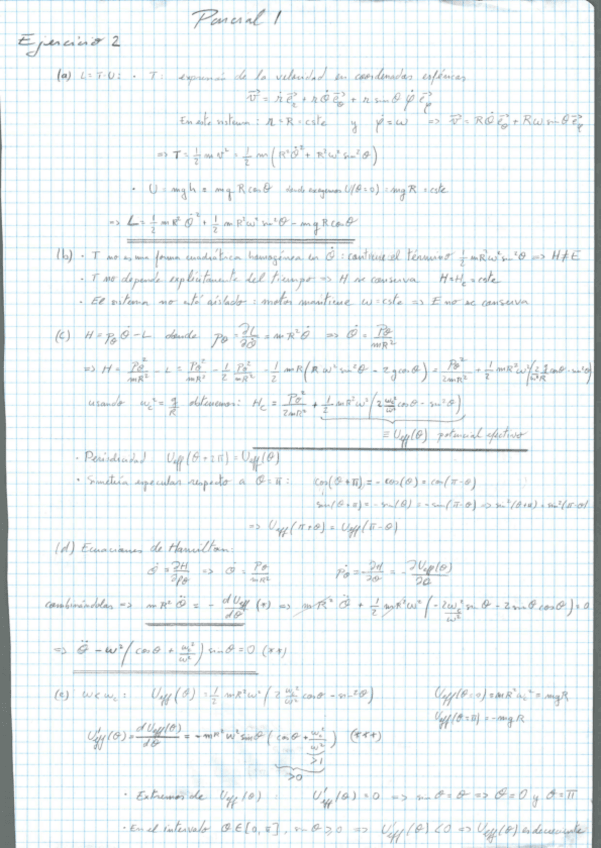 Parcial 1
Ejercicio 2
(a) L=T-U: · T: expresión de la velocidad en coordenadas esféricas
v⃗ = ṙ e⃗_r + r θ̇ e⃗_θ + r sinθ φ̇ e⃗_φ
En este sistema: r=R=cste y φ̇=ω ⇒ v⃗ = Rθ̇ e⃗_θ + Rω sinθ e⃗_φ
⇒ T = 1/2 m v² = 1/2 m (R²θ̇² + R²ω² sin²θ)
· U = mgh = mg R cosθ donde U(θ=0) = mgR = cste
⇒ L = 1/2 mR² θ̇² + 1/2 mR²ω² sin²θ - mg R cosθ
(b) · T no es una forma cuadrática homogénea en θ̇: contiene el término 1/2 mR²ω² sin²θ ⇒ H≠E
· T no depende explícitamente del tiempo ⇒ H se conserva H=H_c=cste
· El sistema no está aislado: motor mantiene ω=cste ⇒ E no se conserva
(c) H = p_θ θ̇ - L donde p_θ = ∂L/∂θ̇ = mR² θ̇ ⇒ θ̇ = p_θ/mR²
⇒ H = p_θ²/mR² - L = p_θ²/mR² - 1/2 p_θ²/mR² - 1/2 mR (Rω² sin²θ - 2g cosθ) = p_θ²/2mR² + 1/2 mR²ω² (2g/ω²R cosθ - sin²θ)
usando ω_c² = g/R obtenemos: H_c = p_θ²/2mR² + 1/2 mR²ω² (2 ω_c²/ω² cosθ - sin²θ)
≡ U_eff(θ) potencial efectivo
· Periodicidad U_eff(θ+2π) = U_eff(θ)
· Simetría especular respecto a θ=π: cos(θ+π) = - cos(θ) = cos(π-θ)
sin(θ+π) = - sin(θ) = - sin(π-θ) ⇒ sin²(θ+π) = sin²(π-θ)
⇒ U_eff(π+θ) = U_eff(π-θ)
(d) Ecuaciones de Hamilton:
θ̇ = ∂H/∂p_θ ⇒ θ̇ = p_θ/mR² ṗ_θ = -∂H/∂θ = -∂U_eff(θ)/∂θ
combinándolas ⇒ mR² θ̈ = - dU_eff/dθ (*) ⇒ mR² θ̈ + 1/2 mR²ω² (-2 ω_c²/ω² sinθ - 2 sinθ cosθ) = 0
⇒ θ̈ - ω² (cosθ + ω_c²/ω²) sinθ = 0 (**)
(e) ω<ω_c: U_eff(θ) = 1/2 mR²ω² (2 ω_c²/ω² cosθ - sin²θ) U_eff(θ=0) = mR²ω_c² = mgR
U_eff(θ=π) = -mgR
U'_eff(θ) = dU_eff(θ)/dθ = - mR²ω² sinθ (cosθ + ω_c²/ω²) (***)
>1
>0
· Extremos de U_eff(θ) : U'_eff(θ) = 0 ⇒ sinθ = 0 ⇒ θ=0 y θ=π
· En el intervalo θ∈[0,π], sinθ ≥ 0 ⇒ U'_eff(θ) < 0 ⇒ U_eff(θ) es decreciente